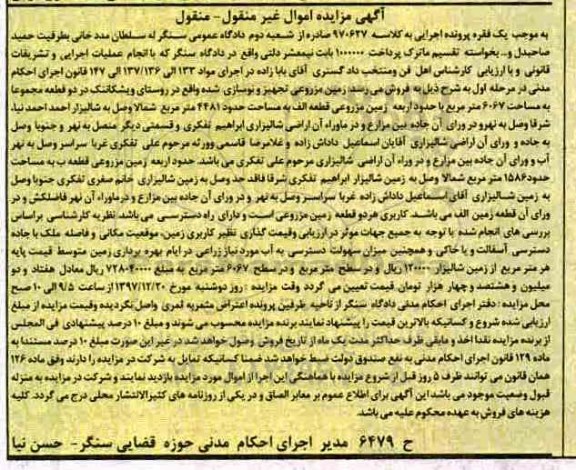 آگهی مزایده اموال غیر منقول- منقول
به موجب یک فقره پرونده اجرایی به کلاسه ۹۷۰۶۲۷ صادره از شعبه دوم دادگاه عمومی سنگر له سلطان مدد خانی بطرفیت حمید
صاحبدل و.. بخواسته تقسیم ماترک پرداخت ۱۰۰۰۰۰۰ بابت نیمعشر دلتی واقع در دادگاه سنگر که با انجام عملیات اجرایی و تشریفات
قانونی و با ارزیابی کارشناس اهل فن ومنتخب داد گستری آقای بابا زاده در اجرای مواد ۱۳۳ الی ۱۳۷/۱۳۶ الی ۱۴۷ قانون اجرای احکام
مدنی در مرحله اول به شرح ذیل به فروش می رسد: زمین مزروعی تجهیز و نوسازی شده واقع در روستای ویشکاننک در دو قطعه مجموعا
به مساحت ۶۰۶۷ متر مربع با حدود اربعه زمین مزروعی قطعه الف به مساحت حدود ۴۴۸۱ متر مربع شمالا وصل به شالیزار احمد احمد نیا،
شرقا وصل به نهر و در ورای آن جاده بین مزارع و در ماوراء آن اراضی شالیزاری ابراهیم تفکری و قسمتی دیگر متصل به نهر و جنوبا وصل
به جاده و ورای آن اراضی شالیزاری آقایان اسماعیل داداش زاده و غلامرضا قاسمی وورثه مرحوم علی تفکری غربا سراسر وصل به نهر
آب و ورای آن جاده بین مزارع و در وراء آن اراضی شالیزاری مرحوم علی تفکری می باشد. حدود اربعه زمین مزروعی قطعه ب به مساحت
حدود ۱۵۸۶ متر مربع شمالا وصل به زمین شالیزار ابراهیم تفکری شرقا فاقد حد وصل به زمین شالیزاری خانم صغری تفکری جنوبا وصل
به زمین شالیزاری آقای اسماعیل داداش زاده غربا سراسر وصل به نهر و در ورای آن جاده بین مزارع و در ماوراء آن نهر فاضلکش و در
ورای آن قطعه زمین الف می باشد. کاربری هر دو قطعه زمین مزروعی است و دارای راه دسترسی می باشد. نظریه کارشناسی براساس
بررسی های انجام شده با توجه به جمیع جهات موثر در ارزیابی وقیمت گذاری نظیر کاربری زمین، موقعیت مکانی و فاصله ملک با جاده
دسترسی آسفالت و یا خاکی و همچنین میزان سهولت دسترسی به آب مورد نیاز زراعی در ایام بهره برداری زمین متوسط قیمت پایه
هر متر مربع از زمین شالیزار ۱۲۰۰۰۰ ریال و در سطح متر مربع و در سطح ۶۰۶۷ متر مربع به مبلغ ۷۲۸۰۴۰۰۰۰ ریال معادل هفتاد و دو
میلیون و هشتصد و چهار هزار تومان قیمت تعیین می گردد وقت مزایده : روز دوشنبه مورخ ۱۳۹۷/۱۲/۲۰ از ساعت ۹/۵ الی ۱۰ صبح
محل مزایده : دفتر اجرای احکام مدنی دادگاه سنگر از ناحیه طرفین پرونده اعتراض مثمربه ثمری واصل نگردیده وقیمت مزایده از مبلغ
ارزیابی شده شروع و کسانیکه بالاترین قیمت را پیشنهاد نمایند برنده مزایده محسوب می شوند و مبلغ ۱۰ درصد پیشنهادی فی المجلس
از برنده مزایده نقدا اخذ و مابقی ظرف حداکثر مدت یک ماه از تاریخ فروش وصول خواهد شد در غیر این صورت مبلغ ۱۰ درصد مستندا به
ماده ۱۲۹ قانون اجرای احکام مدنی به نفع صندوق دولت ضبط خواهد شد ضمنا کسانیکه تمایل به شرکت در مزایده را دارند وفق ماده ۱۲۶
همان قانون می توانند ظرف ۵ روز قبل از شروع مزایده با هماهنگی این اجرا از اموال مورد مزایده بازدید نمایند و شرکت در مزایده به منزله
قبول وضعیت موجود می باشد این آگهی برای اطلاع عموم بر معابر الصاق و در یکی از روزنامه های کثیرالانتشار محلی درج می گردد. کلیه
هزینه های فروش به عهده محکوم علیه می باشد.
ح ۶۴۷۹ مدیر اجرای احکام مدنی حوزه قضایی سنگر- حسن نیا